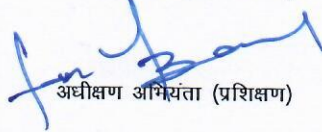 अधीक्षण अभियंता (प्रशिक्षण)